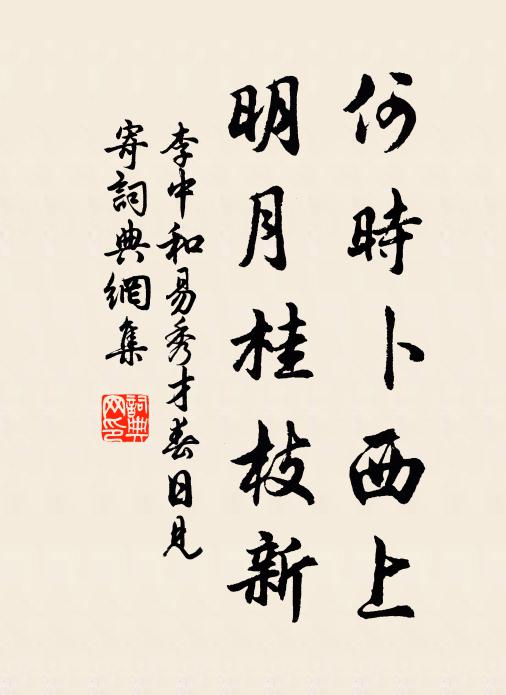 何時卜西上
明月桂枝新
李中和易秀才春日見
寄詞典網集
詞典
網印